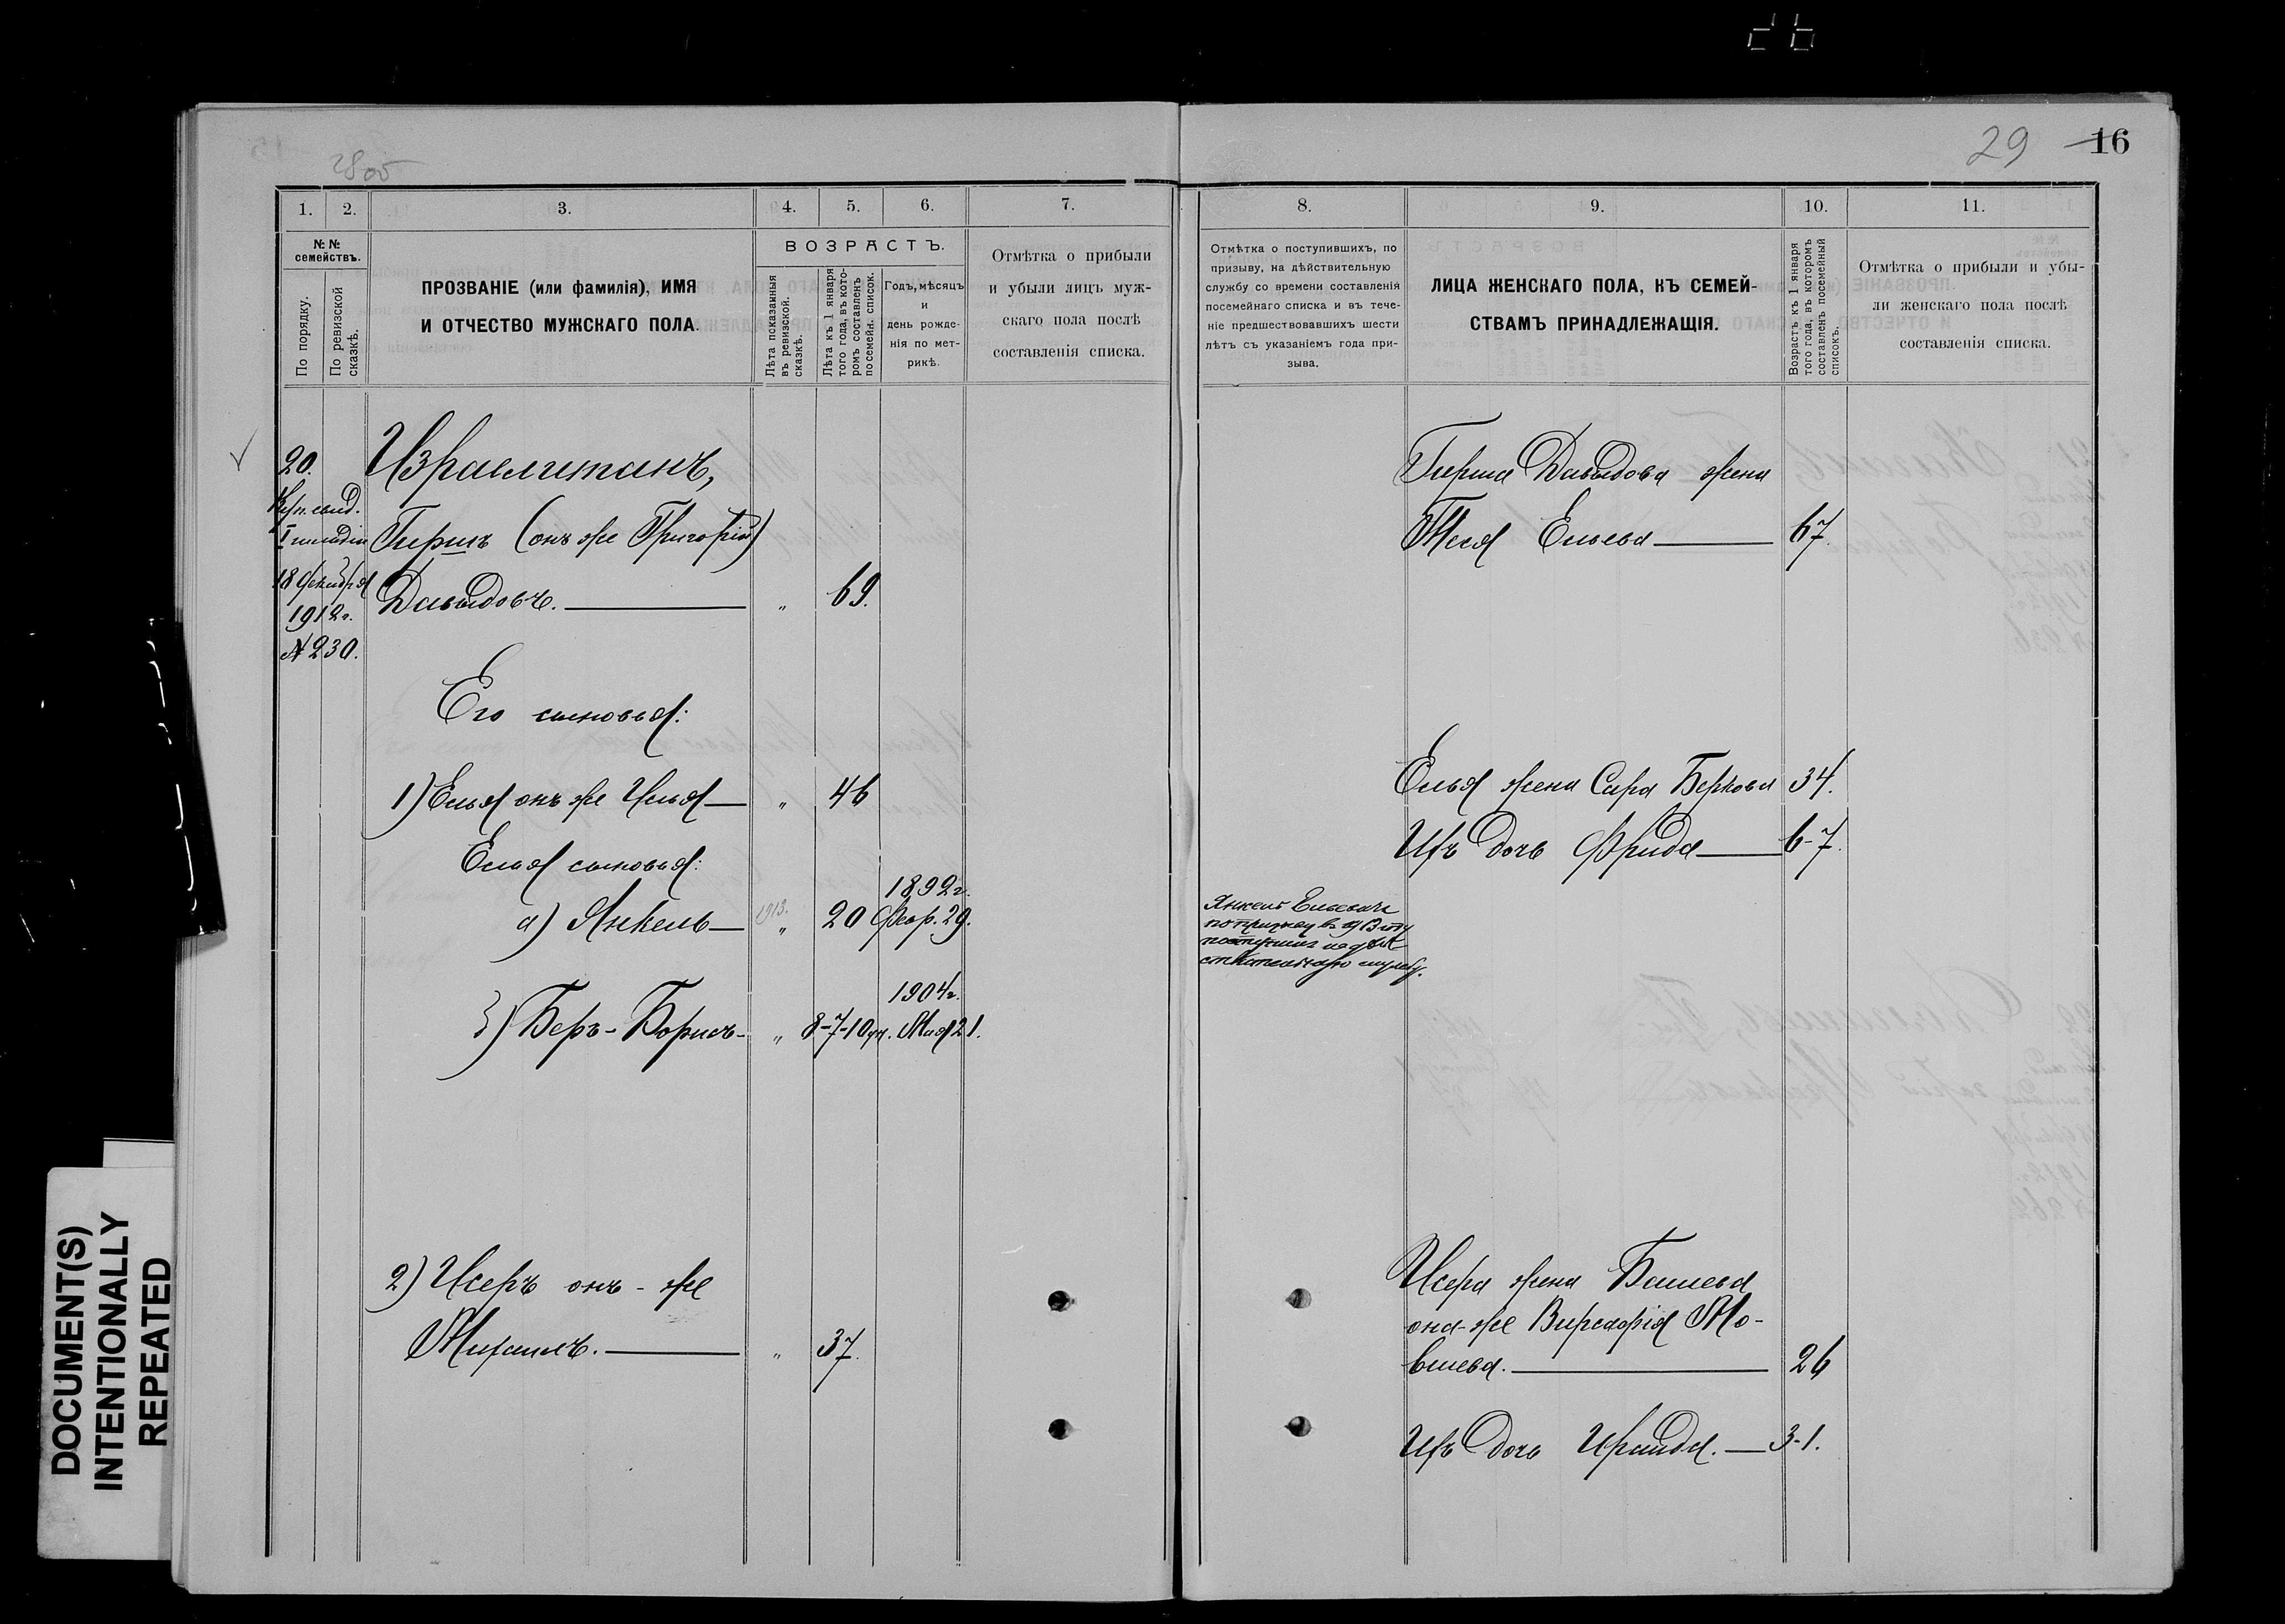 29 16
1. 2. 3. 4. 5. 6. 7.
№№ семействъ.
По порядку.
По ревизской сказкѣ.
ПРОЗВАНІЕ (или фамилія), ИМЯ
И ОТЧЕСТВО МУЖСКАГО ПОЛА.
ВОЗРАСТЪ.
Лѣта показанныя
въ ревизской.
сказкѣ.
Лѣта къ 1 января
того года, въ кото-
ромъ составленъ
посемейн. список.
Годъ, мѣсяцъ
и
день рожде-
нія по мет-
рикѣ.
Отмѣтка о прибыли
и убыли лицъ муж-
скаго пола послѣ
составленія списка.
20.
Куп. свид.
I гильдіи
18 декабря
1912 г.
№ 230.
Израелитанъ,
Гиршъ (онъ же Григорій)
Давыдовъ. — " 69.
Его сыновья:
1) Елья онъ же Илья — " 46
Елья сыновья:
1892 г.
а) Янкель — 1913. " 20 Февр. 29.
1904 г.
б) Беръ-Борисъ - " 8-7-10 дн. Мая 21.
2) Исеръ онъ-же
Михаилъ. — " 37.
8. 9. 10. 11.
Отмѣтка о поступившихъ, по
призыву, на дѣйствительную
службу со времени составленія
посемейнаго списка и въ тече-
ніе предшествовавшихъ шести
лѣтъ съ указаніемъ года при-
зыва.
ЛИЦА ЖЕНСКАГО ПОЛА, КЪ СЕМЕЙ-
СТВАМЪ ПРИНАДЛЕЖАЩІЯ.
Возрастъ къ 1 января
того года, въ которомъ
составленъ посемейный
списокъ.
Отмѣтка о прибыли и убы-
ли женскаго пола послѣ
составленія списка.
Гирша Давыдова жена
Ельева — 67.
Елья жена Сара Беркова 34.
Ихъ дочь Фрида — 6-7.
Янкель Ельевичъ
по призыву въ 1913 году
поступилъ на дѣй-
ствительную службу.
Исера жена Башева
она-же Мо-
вшева. — 26
Ихъ дочь Ираида. — 3-1.
DOCUMENT(S)
INTENTIONALLY
REPEATED